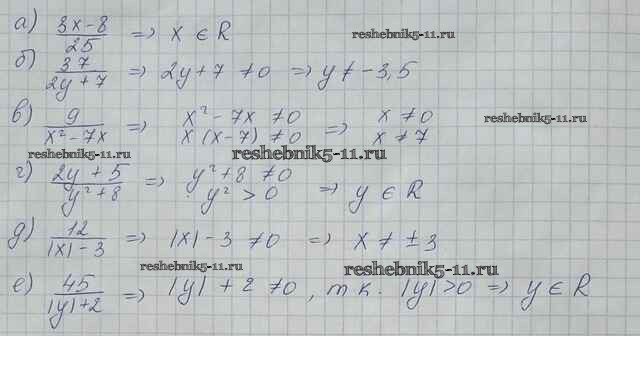 а) (3x-8)/25 => x ∈ R
reshebnik5-11.ru
б) 37/(2y+7) => 2y+7 ≠0 => y ≠ -3,5
в) 9/(x²-7x) => x²-7x ≠0 x(x-7) ≠0 => x ≠0 x ≠7
reshebnik5-11.ru
reshebnik5-11.ru
reshebnik5-11.ru
г) (2y+5)/(y²+8) => y²+8 ≠0 y² > 0 => y ∈ R
д) 12/(|x|-3) => |x|-3 ≠0 => x ≠ ±3
reshebnik5-11.ru
reshebnik5-11.ru
е) 45/(|y|+2) => |y|+2 ≠0, т.к. |y|>0 => y ∈ R